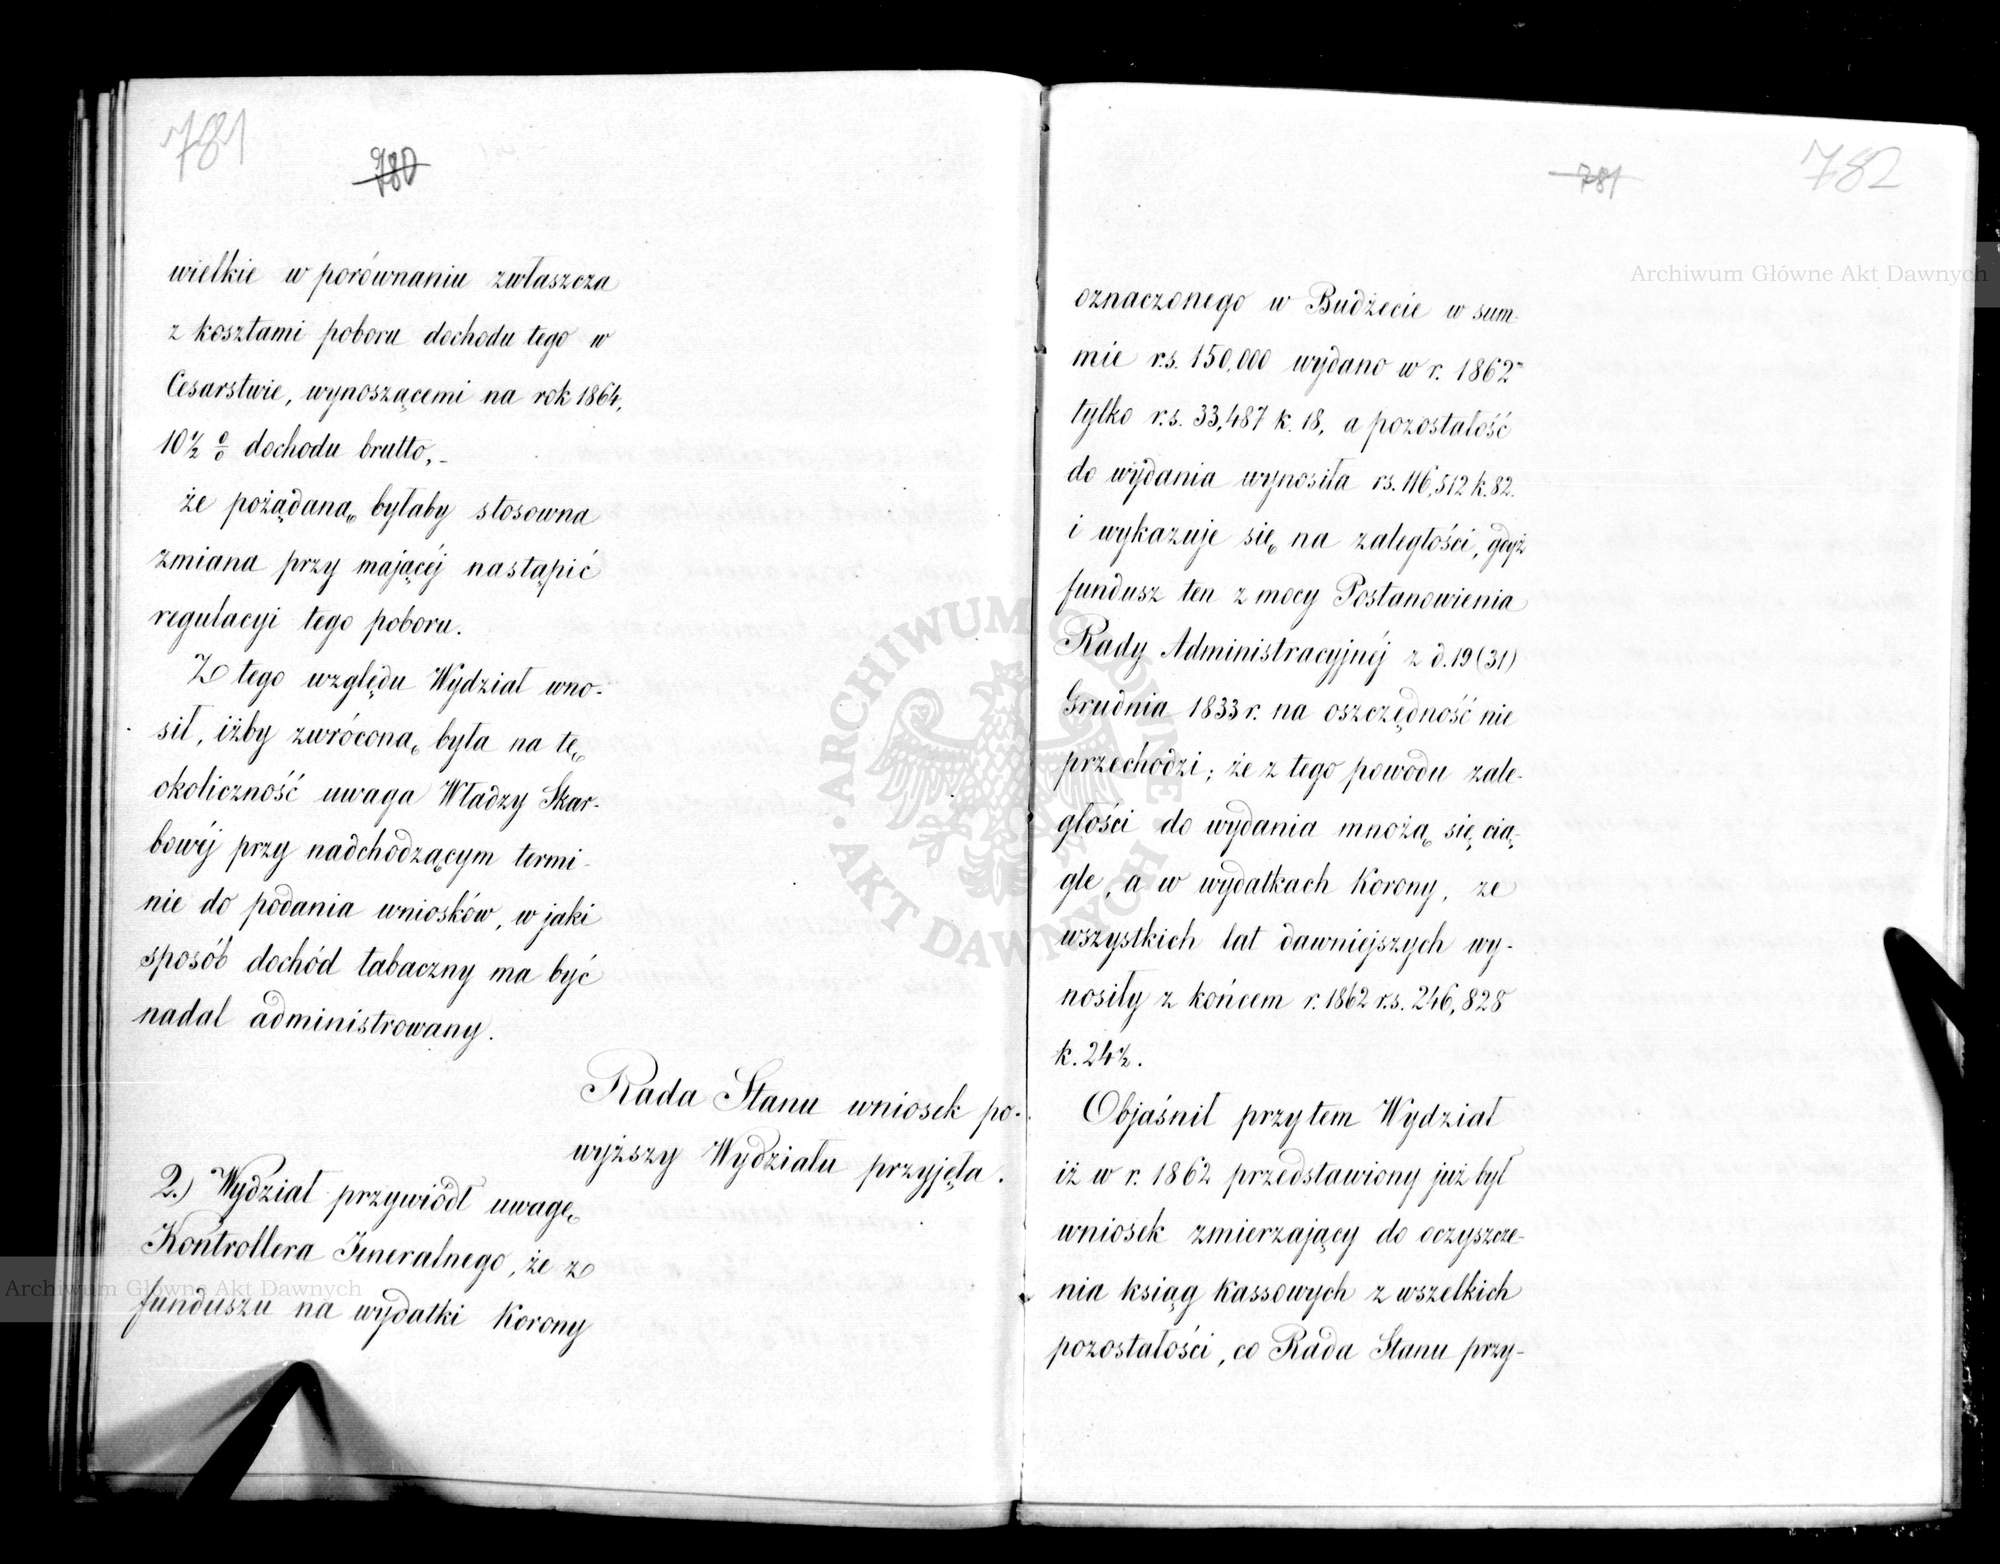 781
780
wielkie w porównaniu zwłaszcza
z kosztami poboru dochodu tego w
Cesarstwie, wynoszącemi na rok 1864,
10½ % dochodu brutto,-
że pożądaną byłaby stosowna
zmiana przy mającéj nastąpić
regulacyi tego poboru.
Z tego względu Wydział wno-
sił, iżby zwróconą była na tę
okoliczność uwaga Władzy Skar-
bowéj przy nadchodzącym termi-
nie do podania wniosków, w jaki
sposób dochód tabaczny ma być
nadal administrowany.
Rada Stanu wniosek po-
wyższy Wydziału przyjęła.
2.) Wydział przywiódł uwagę
Kontrollera Jeneralnego, że z
funduszu na wydatki Korony
781
782
oznaczonego w Budżecie w sum-
mie r.s. 150,000 wydano w r. 1862
tylko r.s. 33,487 k. 18, a pozostałość
do wydania wynosiła rs. 116,512 k. 82.
i wykazuje się na zaległości, gdyż
fundusz ten z mocy Postanowienia
Rady Administracyjnéj z d. 19 (31)
Grudnia 1833 r. na oszczędność nie
przechodzi; że z tego powodu zale-
głości do wydania mnożą się cią-
gle, a w wydatkach Korony, ze
wszystkich lat dawniejszych wy-
nosiły z końcem r. 1862 r.s. 246,828
k. 24½.
Objaśnił przytem Wydział
iż w r. 1862 przedstawiony już był
wniosek zmierzający do oczyszcze-
nia ksiąg Kassowych z wszelkich
pozostałości, co Rada Stanu przy-
Archiwum Główne Akt Dawnych
Archiwum Główne Akt Dawnych
ARCHIWUM GŁÓWNE AKT DAWNYCH